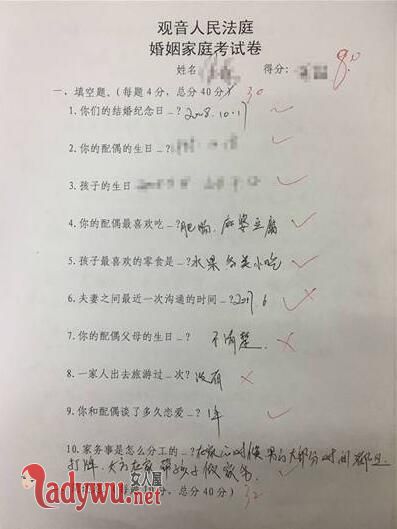 观音人民法庭
婚姻家庭考试卷
姓名 得分: 80
一、填空题、(每题4分,总分40分) 30
1.你们的结婚纪念日_?2008.10.17
2.你的配偶的生日_?
3.孩子的生日
4.你的配偶最喜欢吃_?肥肠、麻婆豆腐
5.孩子最喜欢的零食是_?水果 各类小吃
6.夫妻之间最近一次沟通的时间_?2017.6
7.你的配偶父母的生日_? 不清楚.
8.一家人出去旅游过_次? 没有
9.你和配偶谈了多久恋爱_? 1年
10.家务事是怎么分工的_?在家的时候 男的大部分时间都是
打牌、女的在家带孩子做家务
总分40分) 32
女人屋
Ladywu.com